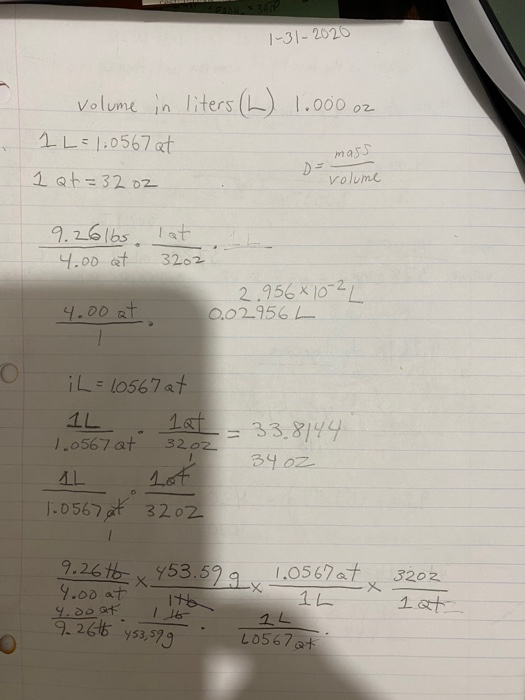 1-31-2020
volume in liters (L) 1.000 oz
1 L = 1.0567 qt
D = mass / volume
1 qt = 32 oz
9.26 lbs / 4.00 qt · 1 qt / 32 oz · 1 L
2.956 x 10^-2 L
4.00 qt / 1 · 0.02956 L
1L = 10567 qt
1L / 1.0567 qt · 1 qt / 32 oz = 33.8144
34 oz
1L / 1.0567 qt · 1 qt / 32 oz
1
1
9.26 lb / 4.00 qt x 453.59 g / 1 lb x 1.0567 qt / 1 L x 32 oz / 1 qt
4.00 qt / 9.26 lb · 1 lb / 453,59 g · 1 L / 1.0567 qt ·